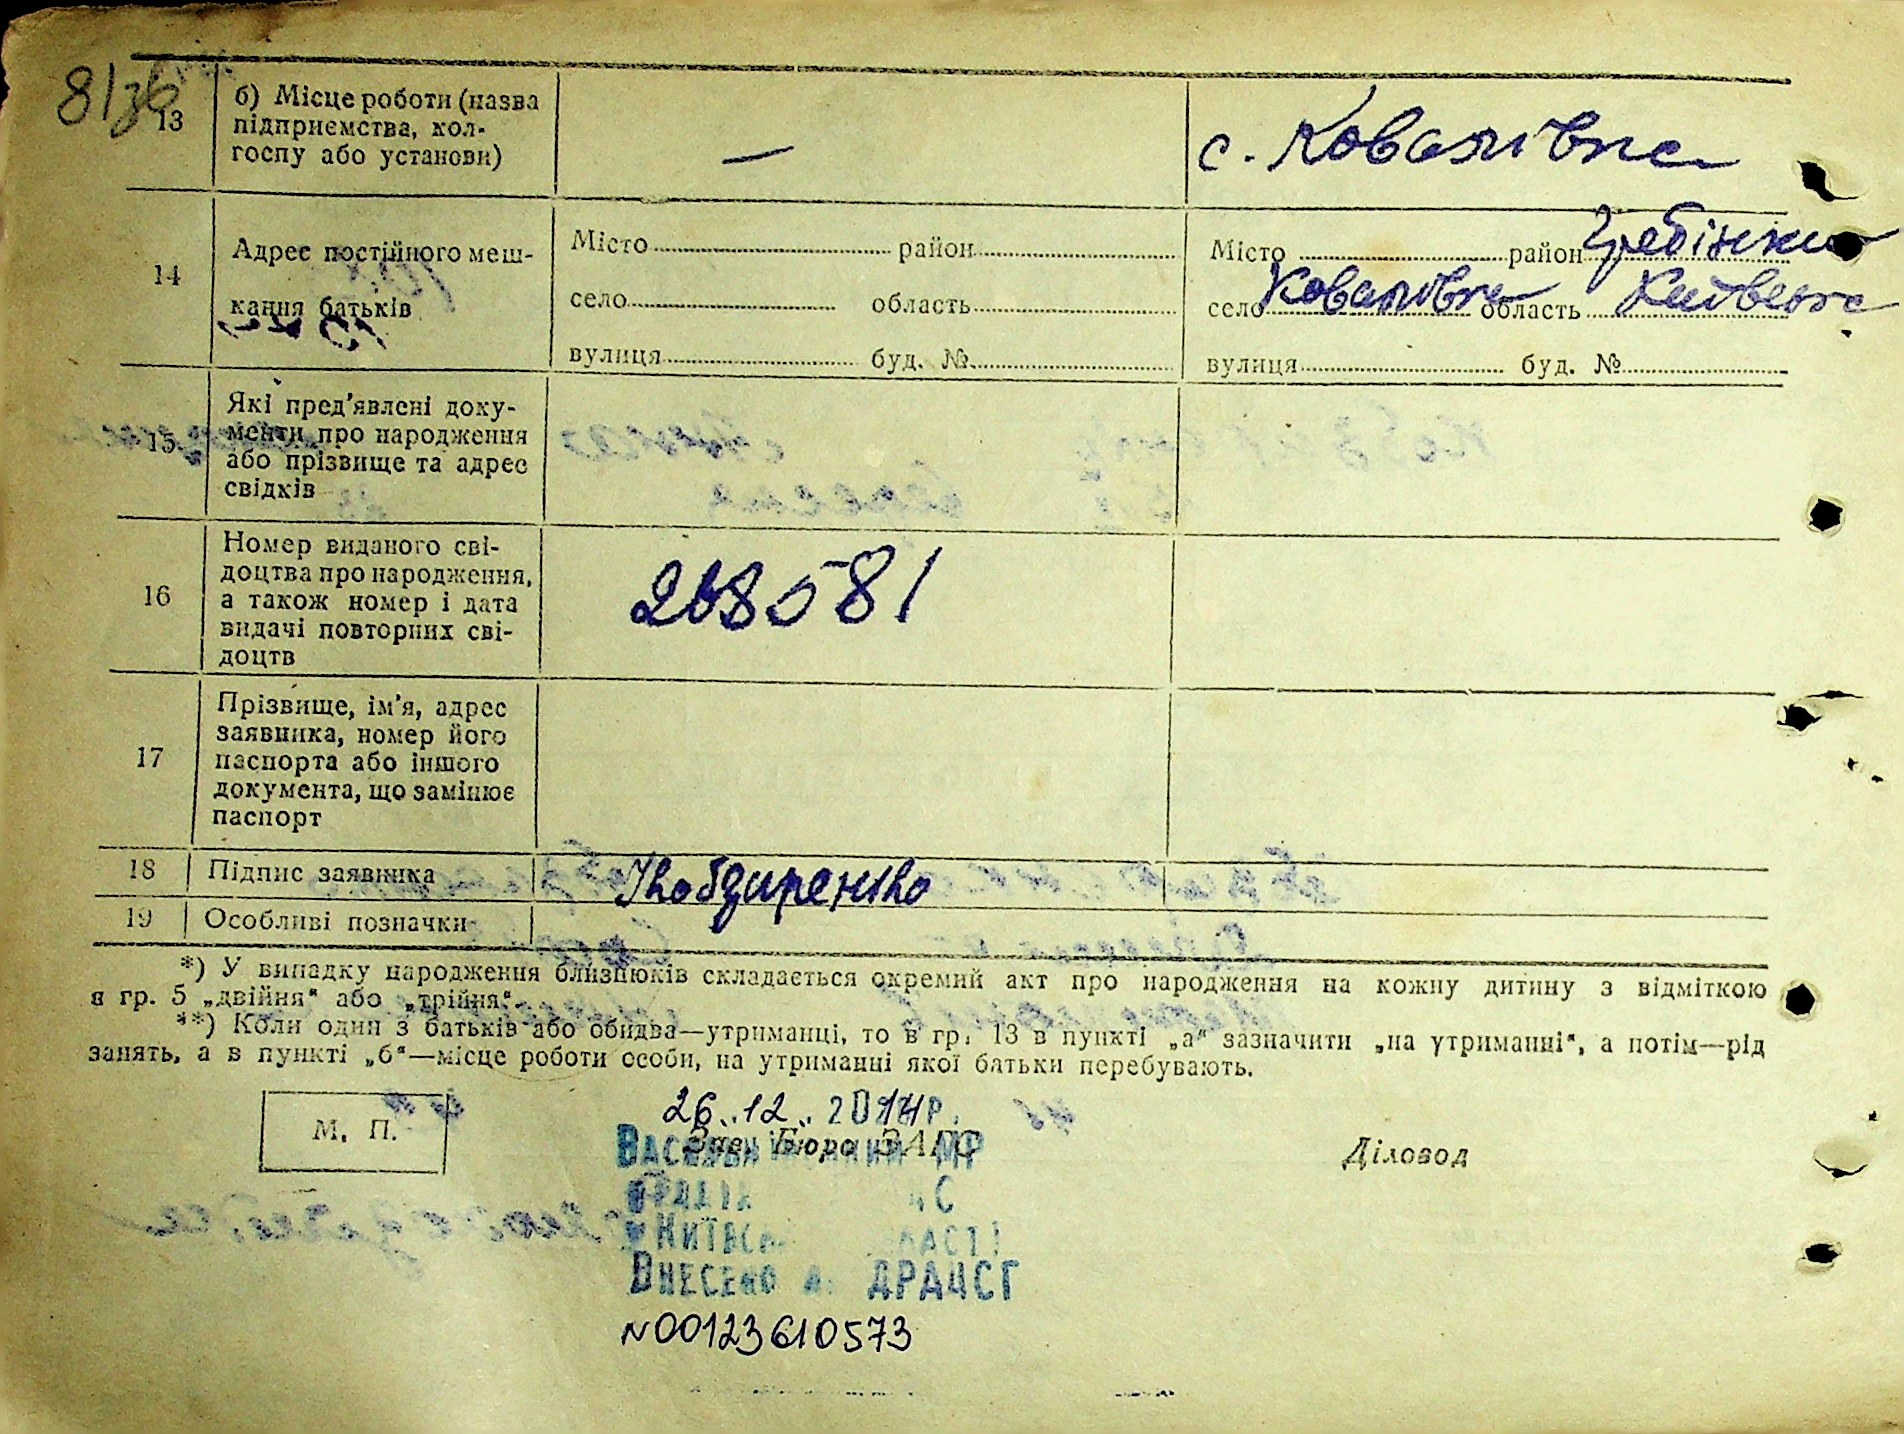 13
б) Місце роботи (назва
підприємства, кол-
госпу або установи)
—
с. Ковалівка
14
Адрес постійного меш-
кання батьків
Місто район
село область
вулиця буд. №
Місто район Гребінки
село Ковалівка область Київська
вулиця буд. №
15
Які пред'явлені доку-
менти про народження
або прізвище та адрес
свідків
16
Номер виданого сві-
доцтва про народження,
а також номер і дата
видачі повторних сві-
доцтв
268581
17
Прізвище, ім'я, адрес
заявника, номер його
паспорта або іншого
документа, що замінює
паспорт
18 Підпис заявника
19 Особливі позначки
*) У випадку народження близнюків складається окремий акт про народження на кожну дитину з відміткою
в гр. 5 „двійня“ або „трійня“.
**) Коли один з батьків або обидва—утриманці, то в гр. 13 в пункті „а“ зазначити „на утриманні“, а потім—рід
занять, а в пункті „б“—місце роботи особи, на утриманні якої батьки перебувають.
М. П.
26.12.2014р.
Зав. Бюро ЗАГС
Діловод
Внесено ДРАЦСГ
N00123610573